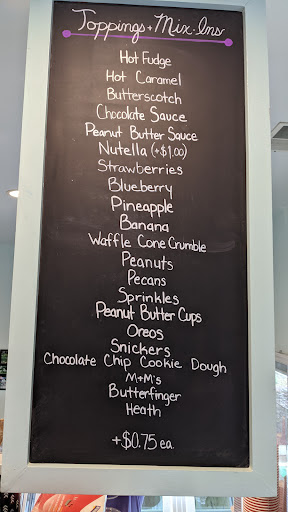 Toppings + Mix-Ins
Hot Fudge
Hot Caramel
Butterscotch
Chocolate Sauce
Peanut Butter Sauce
Nutella (+$1.00)
Strawberries
Blueberry
Pineapple
Banana
Waffle Cone Crumble
Peanuts
Pecans
Sprinkles
Peanut Butter Cups
Oreos
Snickers
Chocolate Chip Cookie Dough
M+M's
Butterfinger
Heath
+$0.75 ea.